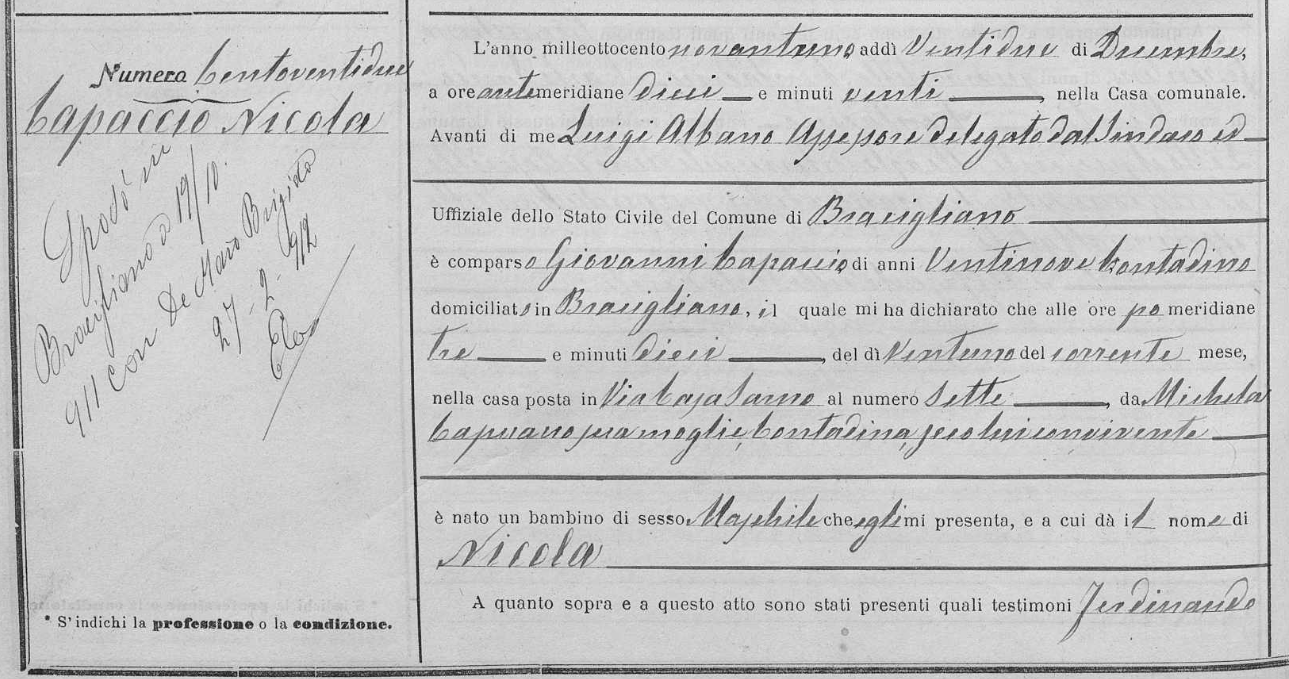 Numero Centoventidue
Capaccio Nicola
Sposò in
Bracigliano a 19/10.
911 con De Maro Brigida
27-2-912
L'anno milleottocento novantuno addì Ventidue di Dicembre,
a ore antemeridiane dieci e minuti venti, nella Casa comunale.
Avanti di me Luigi Albano Assessore delegato dal Sindaco ed
Uffiziale dello Stato Civile del Comune di Bracigliano
è comparso Giovanni Capaccio di anni Ventinove Contadino
domiciliato in Bracigliano, il quale mi ha dichiarato che alle ore pomeridiane
tre e minuti dieci, del dì Ventuno del corrente mese,
nella casa posta in Via Casa Sarno al numero Sette, da Michela
Capuano sua moglie, Contadina, seco lui convivente
è nato un bambino di sesso Maschile che egli mi presenta, e a cui dà il nome di
Nicola
A quanto sopra e a questo atto sono stati presenti quali testimoni Ferdinando
* S'indichi la professione o la condizione.